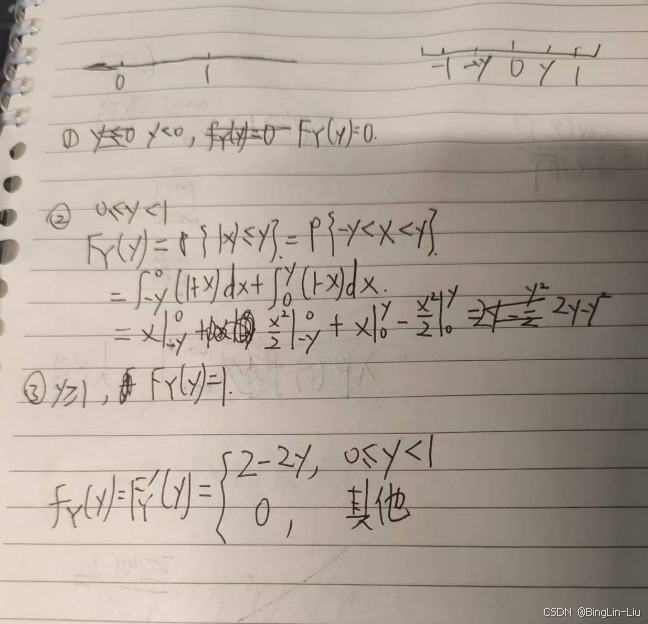 0 1
-1 -y 0 y 1
① y<0, F_Y(y)=0.
② 0≤y<1
F_Y(y)=P{|x|≤y}=P{-y<x<y}.
=∫_{-y}^{0}(1+x)dx+∫_{0}^{y}(1-x)dx.
=x|_{-y}^{0}+x²/2|_{-y}^{0}+x|_{0}^{y}-x²/2|_{0}^{y}=2y-y²
③ y≥1, F_Y(y)=1.
f_Y(y)=F_Y'(y)={2-2y, 0≤y<1
0, 其他
CSDN @BingLin-Liu